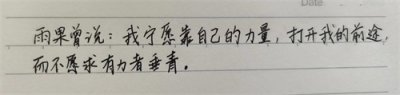 Date
雨果曾说：我宁愿靠自己的力量，打开我的前途，
而不愿求有力者垂青。